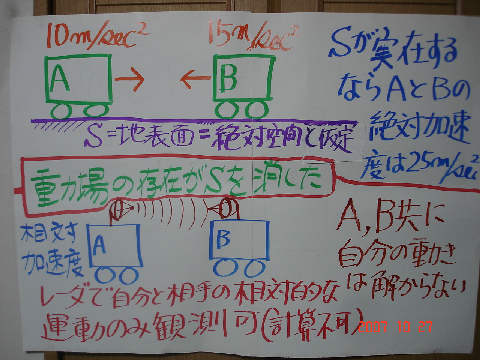 10m/sec²
15m/sec²
A
B
S=地表面=絶対空間と仮定
Sが実在する
ならAとBの
絶対加速
度は25m/sec²
重力場の存在がSを消した
相対
加速度
A
B
A,B共に
自分の動き
は解からない
レーダで自分と相手の相対的な
運動のみ観測可(計算不可)